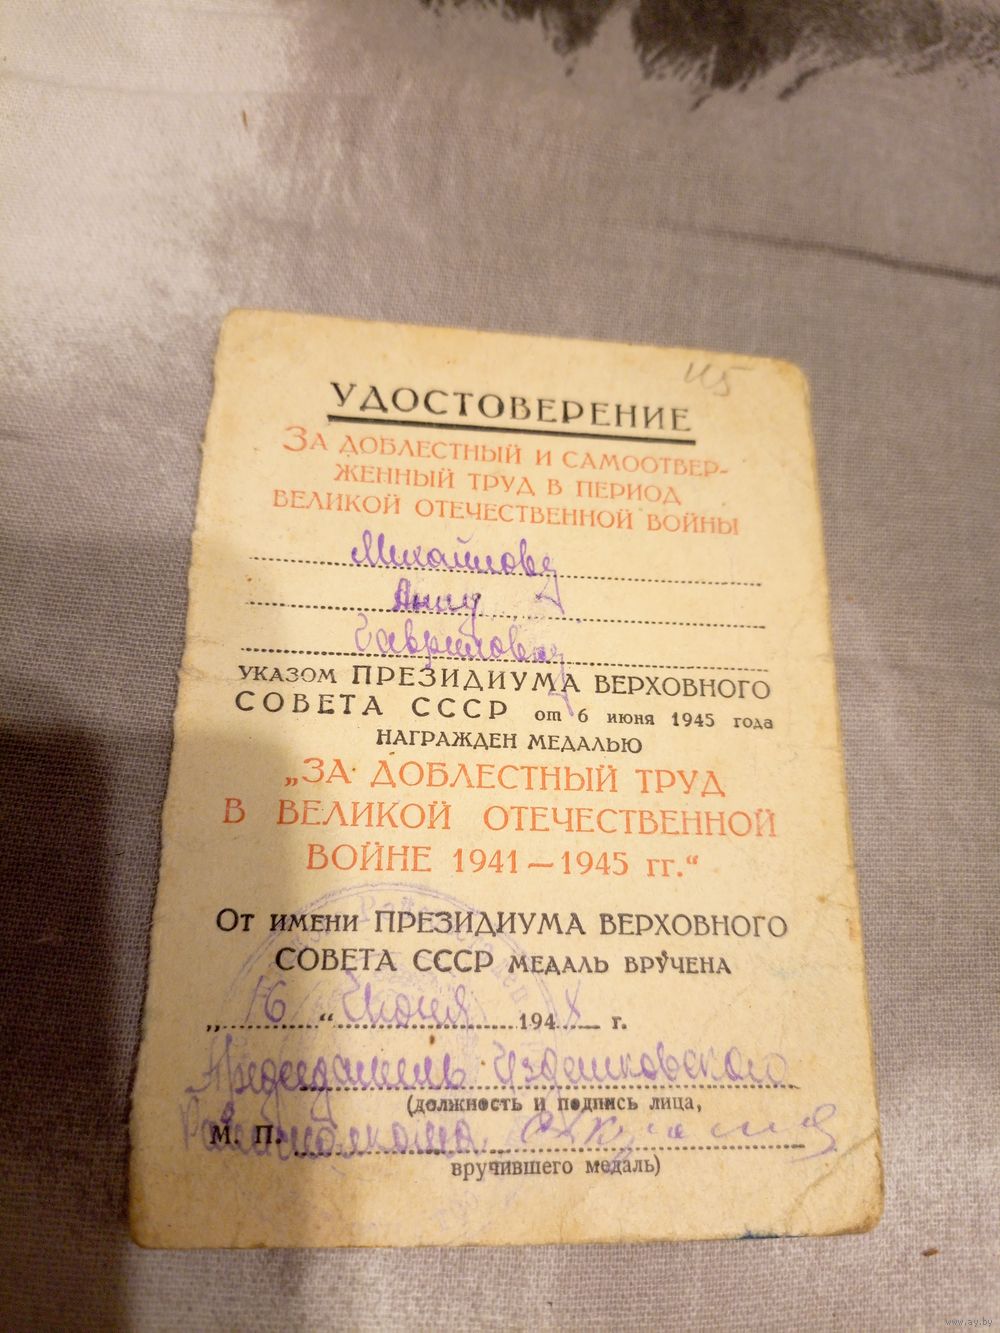 115
УДОСТОВЕРЕНИЕ
ЗА ДОБЛЕСТНЫЙ И САМООТВЕР-
ЖЕННЫЙ ТРУД В ПЕРИОД
ВЕЛИКОЙ ОТЕЧЕСТВЕННОЙ ВОЙНЫ
Михайлову
Анну
Гавриловну
УКАЗОМ ПРЕЗИДИУМА ВЕРХОВНОГО
СОВЕТА СССР от 6 июня 1945 года
НАГРАЖДЕН МЕДАЛЬЮ
„ЗА ДОБЛЕСТНЫЙ ТРУД
В ВЕЛИКОЙ ОТЕЧЕСТВЕННОЙ
ВОЙНЕ 1941—1945 гг.“
ОТ ИМЕНИ ПРЕЗИДИУМА ВЕРХОВНОГО
СОВЕТА СССР МЕДАЛЬ ВРУЧЕНА
„16“ Июня 194 г.
Председатель Издешковского
(должность и подпись лица,
М. П. Райисполкома
вручившего медаль)
www.ay.by